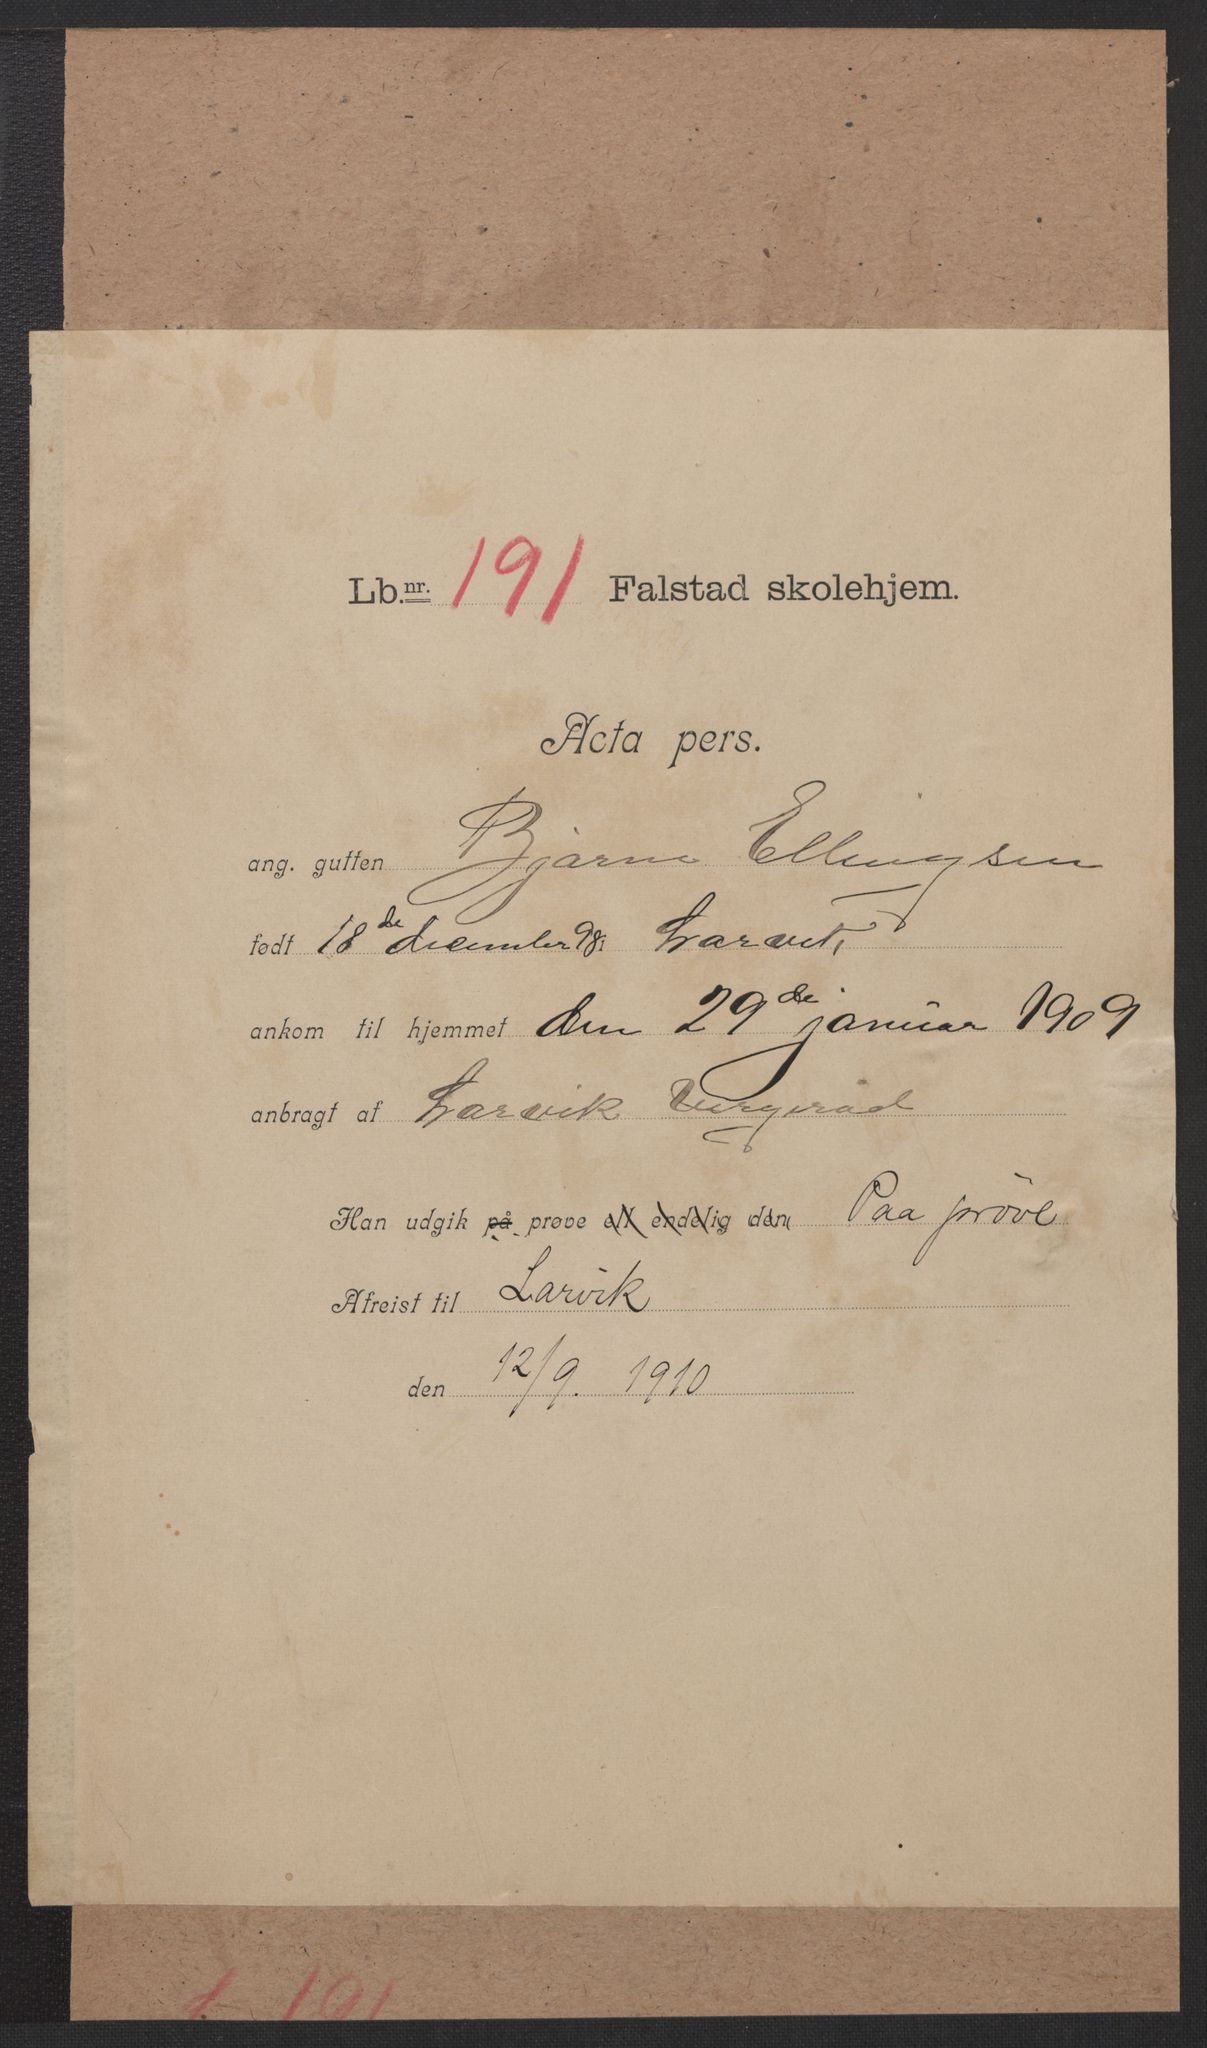 Lb.nr. 191 Falstad skolehjem.
Acta pers.
ang. gutten Bjarne Ellingsen
født 18de december 98 i Larvik,
ankom til hjemmet den 29de januar 1909
anbragt af Larvik Vergeråd
Han udgik på prøve ell endelig den Paa pröve
Afreist til Larvik
den 12/9. 1910
191